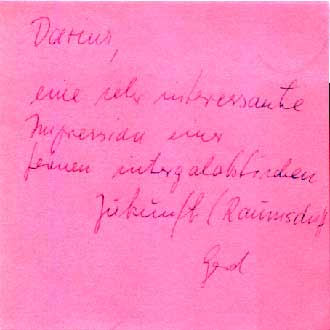 Darius,
eine sehr interessante
Impression einer
fernen intergalaktischen
Zukunft (Raumsch
Gerd